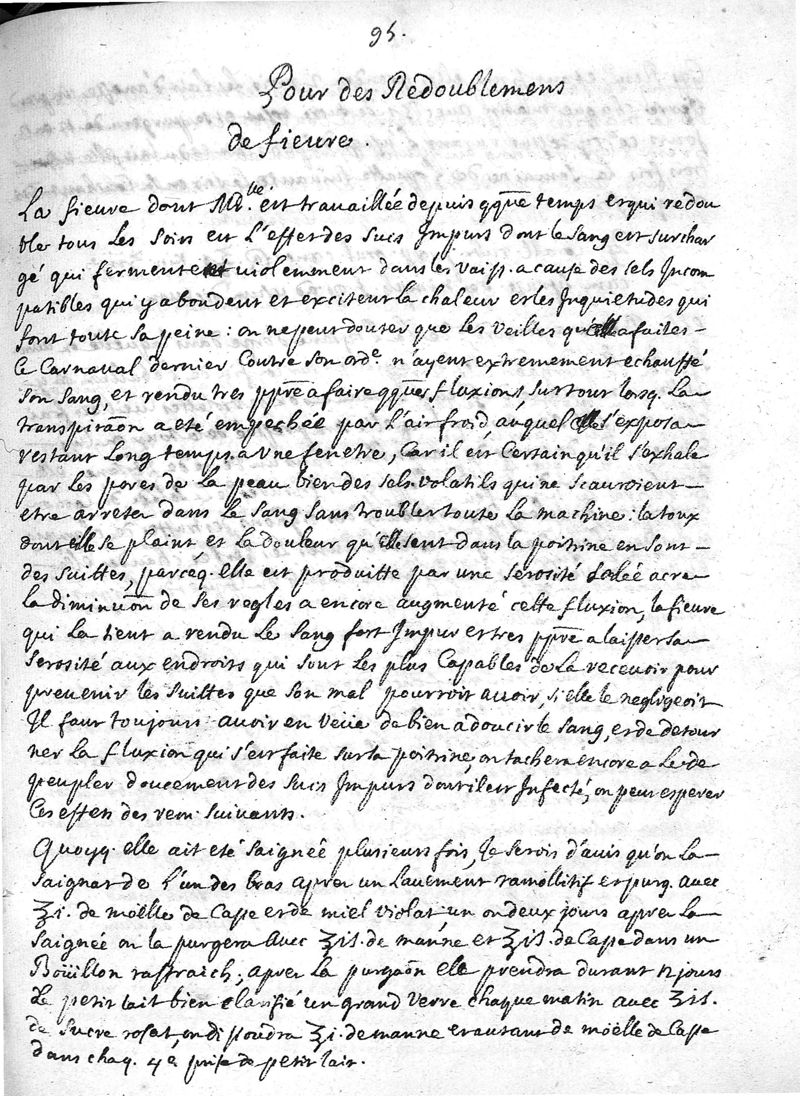 95.
Pour des Redoublemens
de fieure.
La fieure dont Mlle. est travaillée depuis qque temps et qui redou
ble tous Les soirs est L'effet des sucs Impurs dont le sang est surchar
gé qui fermentent violemment dans les vaiss. a cause des sels Incom
patibles qui y abondent et excitent la chaleur et les Inquietudes qui
font toute sa peine : on ne peut douter que Les veilles qu'elle a faites
Ce Carnaval dernier Contre son orde. n'ayent extremement echauffé
son sang, et rendu tres ppre a faire qques fluxions, sur tout lorsq. La
transpiraon a eté empechée par L'air froid, auquel elle s'exposa
restant Long temps a une fenetre, Car il est Certain qu'il s'exhale
par les pores de La peau bien des sels volatils qui ne scauroient
etre arretez dans Le sang sans troubler toute La machine : la toux
dont elle se plaint et La douleur qu'elle sent dans la poitrine en sont
des suittes, parceq. elle est produitte par une serosité salée acre
La diminuon de ses regles a encore augmenté cette fluxion, la fieure
qui La tient a rendu Le sang fort Impur et tres ppre a laisser sa
serosité aux endroits qui sont Les plus Capables de La recevoir pour
prevenir les suittes que son mal pourroit avoir, si elle le negligeoit
Il faut toujours avoir en veüe de bien adoucir le sang, et de detour
ner La fluxion qui s'est faite sur la poitrine, on tachera encore a Le de
peupler doucement des sucs Impurs dont il est Infecté, on peut esperer
Ces effets des rem. suivants.
Quoyq. elle ait eté saignée plusieurs fois, Je serois d'avis qu'on La
saignat de L'un des bras apres un Lavement ramollitif et purg. avec
℥i. de moëlle de Casse et de miel violat un ou deux jours apres La
saignée on la purgera avec ℥iß. de manne et ℥iß. de Casse dans un
Boüillon raffraich ; apres La purgaon elle prendra durant 12 jours
Le petit lait bien clarifié un grand verre chaque matin avec ℥iß.
de sucre rosat, on di soudra ℥i. de manne et autant de moëlle de Casse
dans chaq. 4e prise de petit lait.